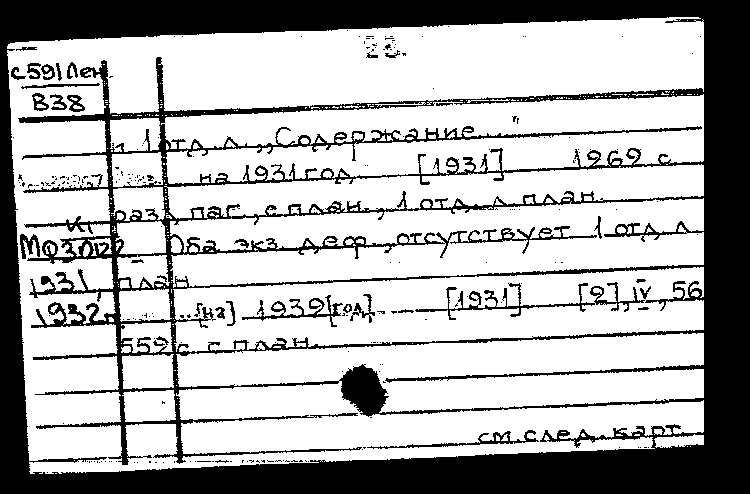 23.
с591Лен
В38
и 1 отд. л. „Содержание..."
на 1931 год [1931] 1969 с.
разд. паг., с план., 1 отд. л. план.
К1
МФЗП122 Оба экз. деф., отсутствует 1 отд. л.
1931, план.
1932 ...[на] 1932[год]... [1931] [2], IV, 56
559 с. с план.
см. след. карт.